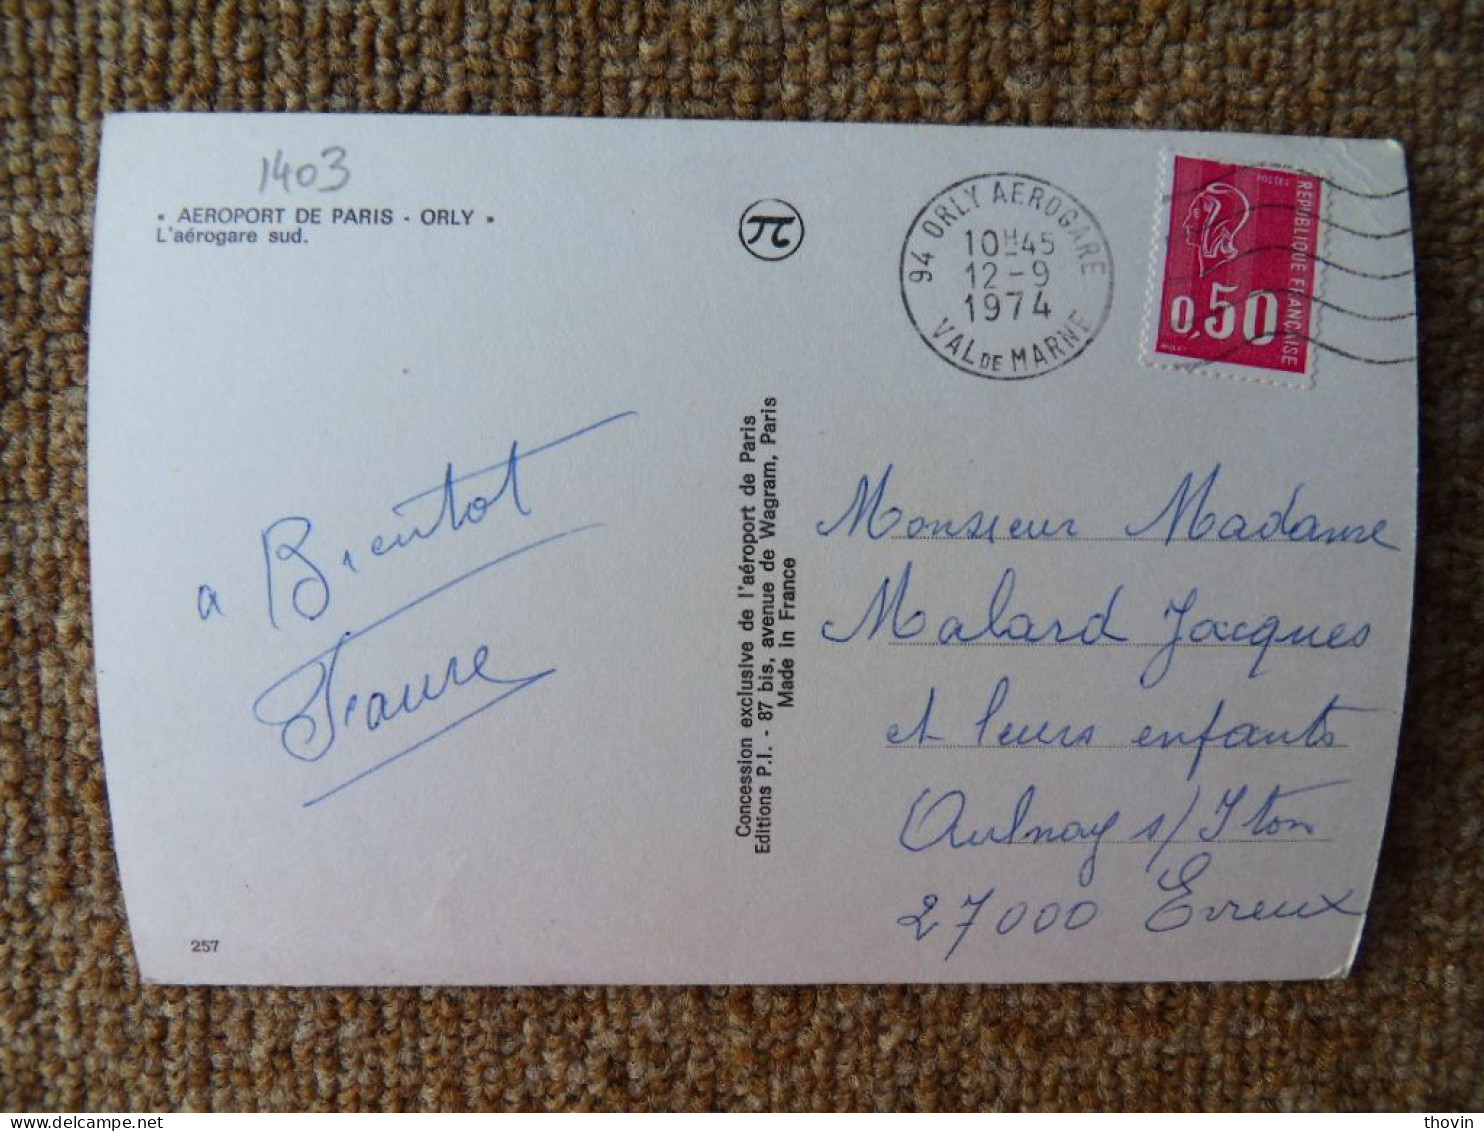 1403
« AEROPORT DE PARIS - ORLY »
L'aérogare sud.
94 ORLY AEROGARE
10H45
12-9
1974
VAL DE MARNE
REPUBLIQUE FRANÇAISE
0,50
a Bientot
Monsieur Madame
Malard Jacques
et leurs enfants
Aulnay s/ Iton
27000 Evreux
Concession exclusive de l'aéroport de Paris
Editions P.I. - 87 bis, avenue de Wagram, Paris
Made in France
257
thovin